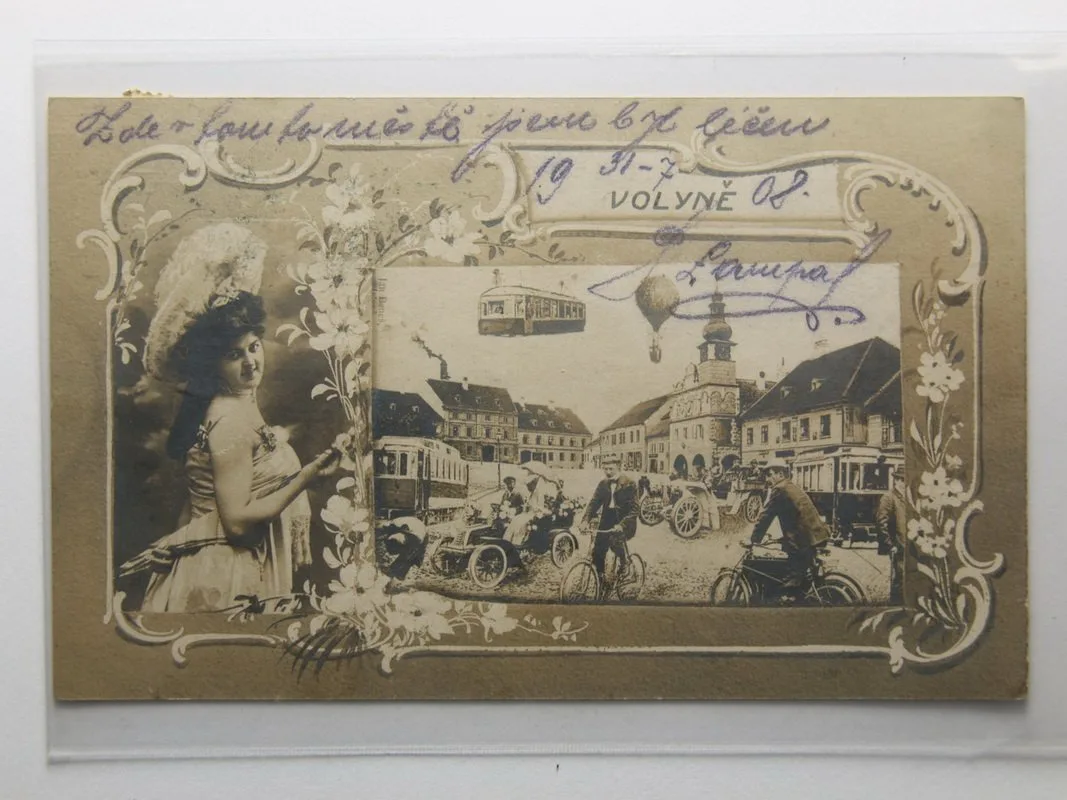 Zde v tomto městě jsem byl léčen
19 31-7 08.
VOLYNĚ